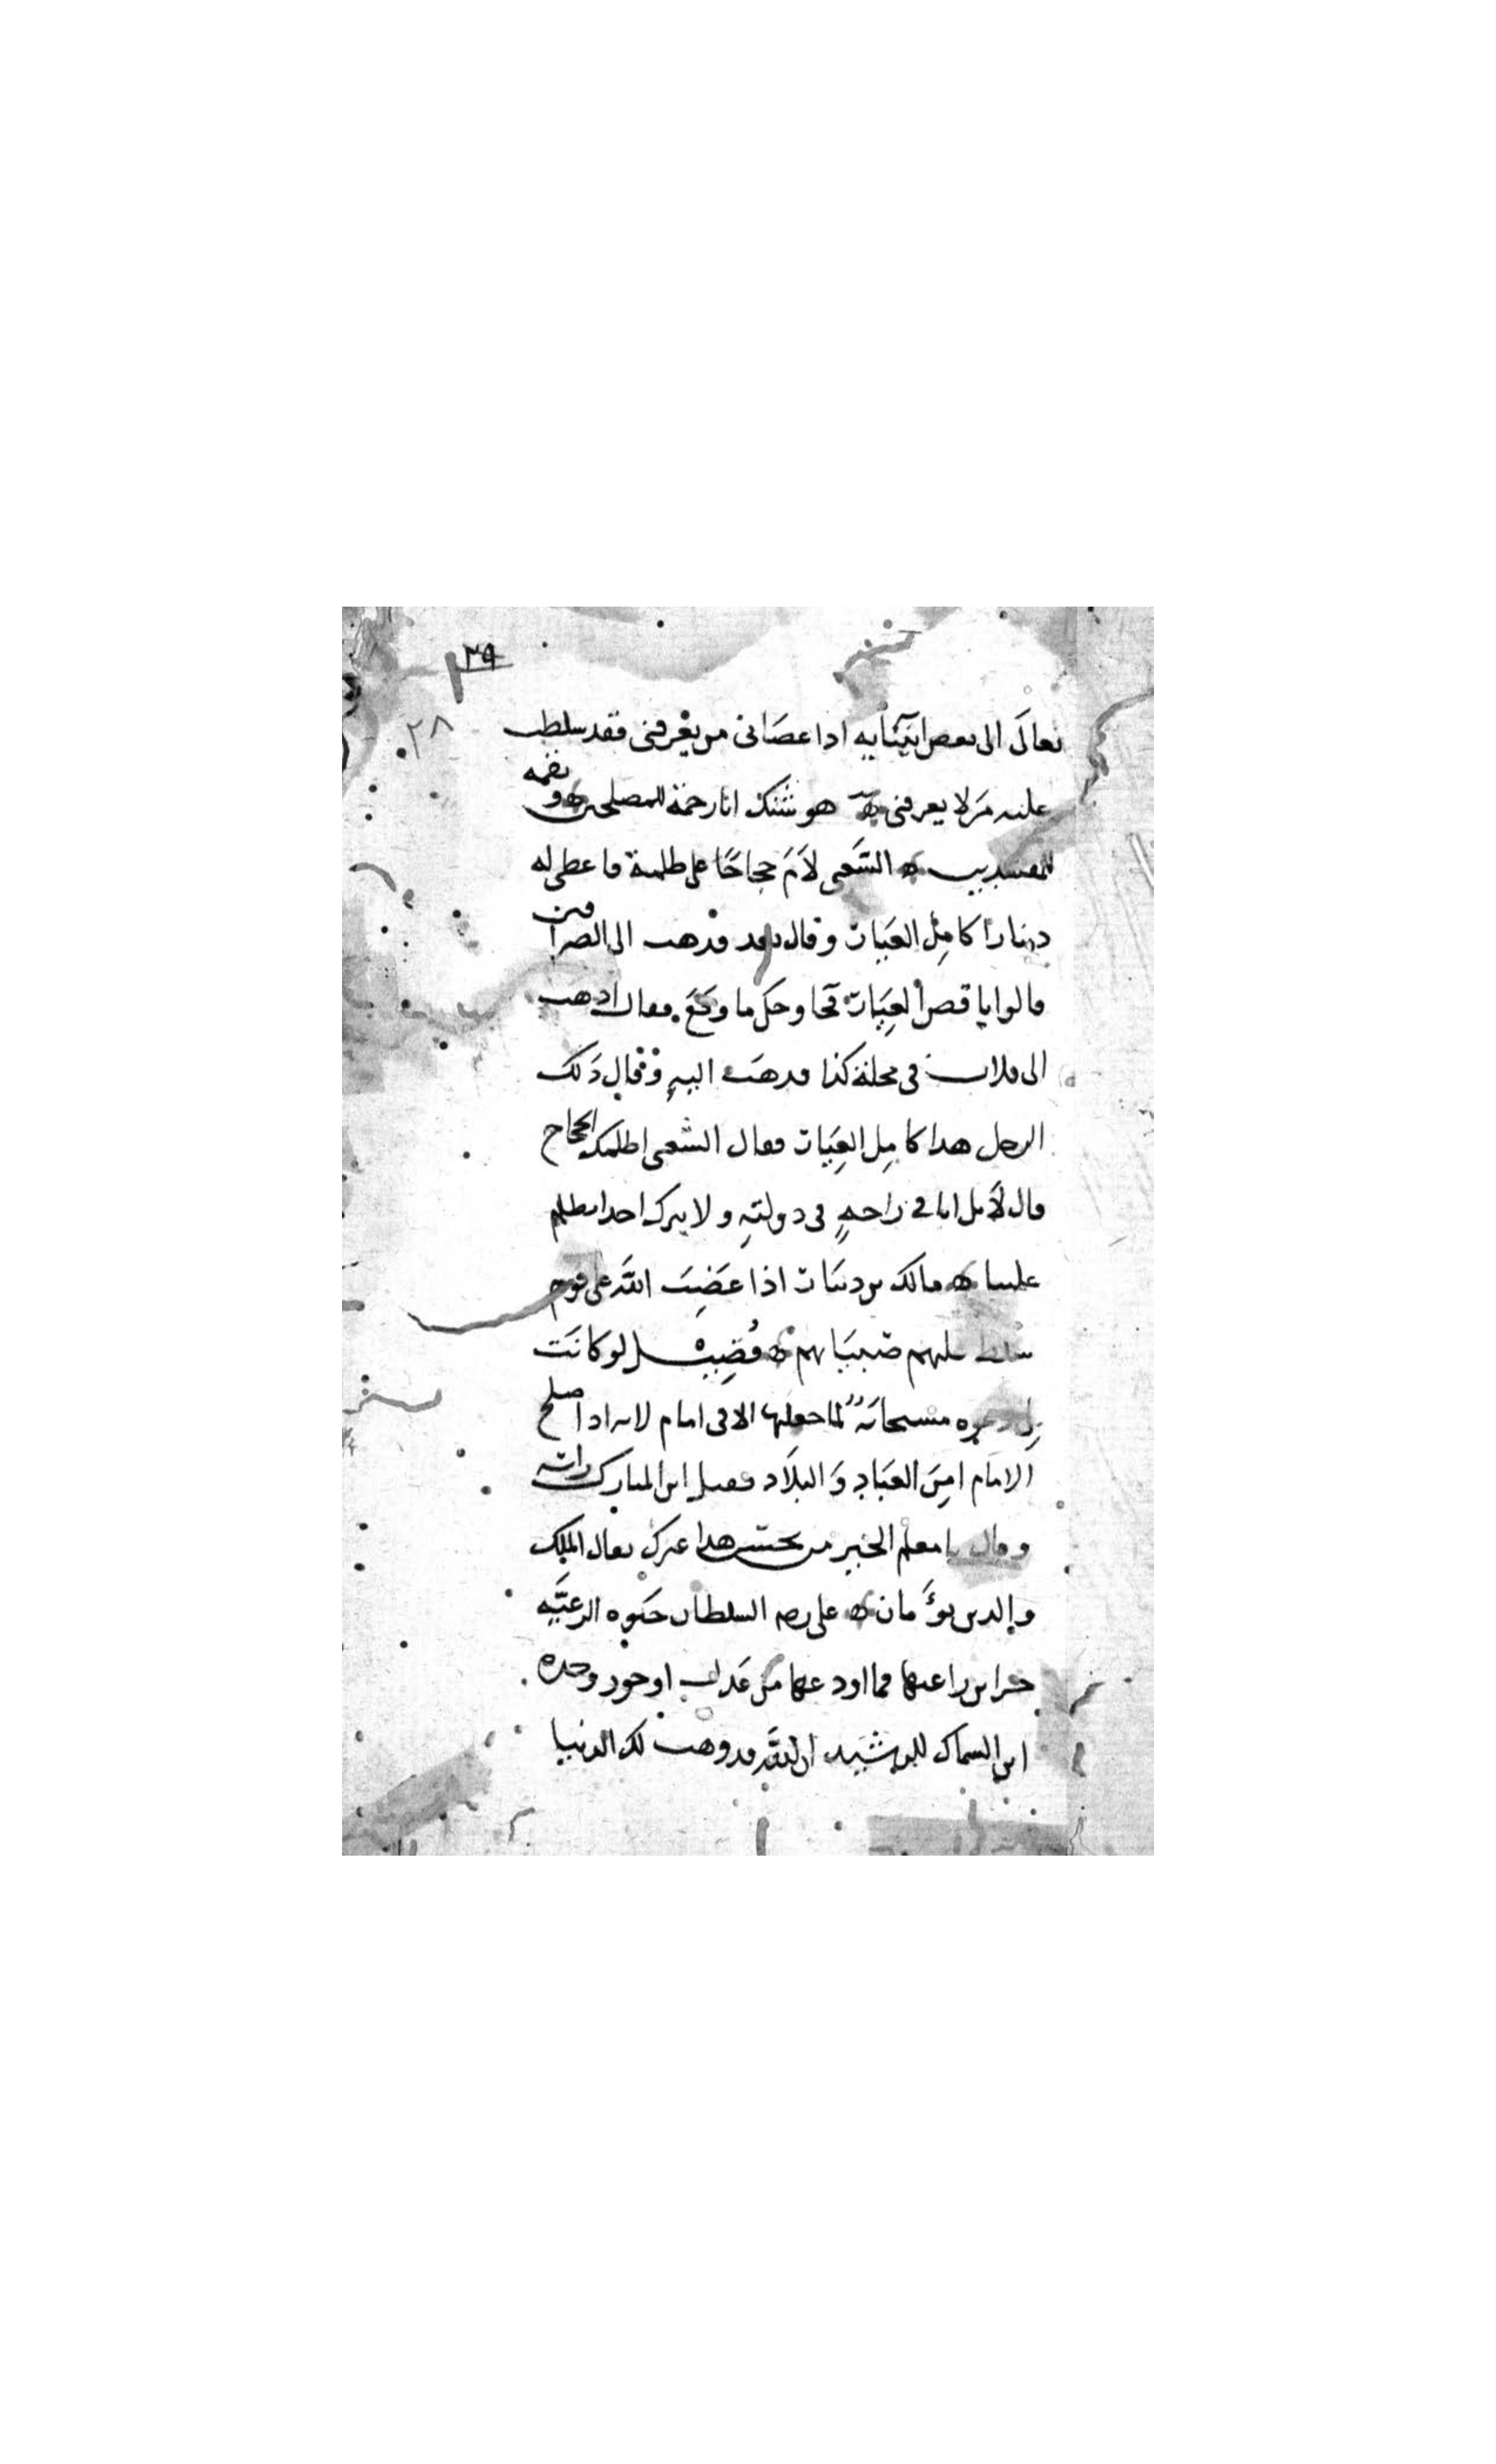 ٣٩
٢٨
تعالى الى بعض انبيايه اذا عصانى من يعرفنى فقد سلطت
عليه من لا يعرفنى هوشنك انا رحمة للمصلحين ونقمة
للمفسدين الشعبى لام حجاجا على ظلمه فاعطى له
دينارا كامل العيار وقال فذهب الى الصرافين
قالوا ناقص العيار فجا وحكى ما وقع فقال اذهب
الى فلان فى محلة كذا فذهب اليه فقال ذلك
الرجل هذا كامل العيار فقال الشعبى اظلمك الحجاج
قال لا بل انا فى راحة فى دولته ولا يترك احدا يظلم
علينا مالك بن دينار اذا غضب الله على قوم
سلط عليهم صبيانهم فضيل لو كانت
لى دعوة مستجابة لما جعلتها الا فى امام لانه اذا صلح
الامام امن العباد والبلاد فقبل ابن المبارك راسه
وقال يا معلم الخير من يحسن هذا غيرك يقال الملك
والدين توأمان على رضه السلطان حيوة الرعية
ابن السماك للرشيد ان الله قد وهب لك الدنيا